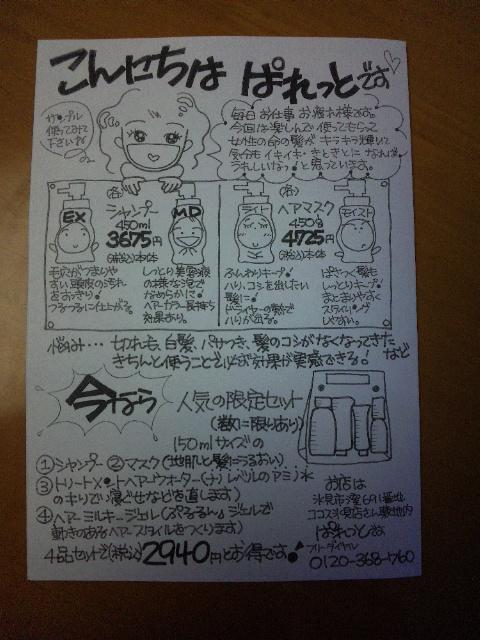 こんにちは ぱれっとです
サンプル
使ってみて
下さいネ
毎日お仕事お疲れ様です。
今回は楽しんで使ってもらって
女性の命の髪がキラキラ輝いて
気分もイキイキ・きときとになれば
うれしいなっ♪と思っています。
(各)
シャンプー
450ml
3675円
(税込)本体
EX
MD
(各)
ヘアマスク
450g
4725円
(税込)本体
ライト
モイスト
毛穴がつまりや
すい頭皮の汚れ
をおきり♪
つるつるに仕上がる。
しっとり美容液
の様な泡で
なめらかに♪
ヘアカラー長持ち
効果あり。
ふんわりキープ♪
ハリ、コシを出したい
髪に♪
ドライヤーの熱で
ハリが出る。
ぱさつく髪も
しっとりキープ♪
まとまりやすく
スタイリング
しやすい。
悩み… 切れ毛、白髪、パサつき、髪のコシがなくなってきた など
きちんと使うことで必ず効果が実感できる!
今なら
人気の限定セット
(数に限りあり)
150mlサイズの
①シャンプー ②マスク(地肌と髪にうるおい)
③トリートメントヘアウォーター(ナノレベルのアミノ水
のキリでい寝ぐせなどを直します)
④ヘアーミルキージェル(ぷるるんジェルで
動きのあるヘアースタイルをつくります)
4品セットで(税込)2940円とお得です!
お店は
氷見市窪691番地
ココス氷見店さん敷地内
ぱれっとです
フリーダイヤル
0120-368-760